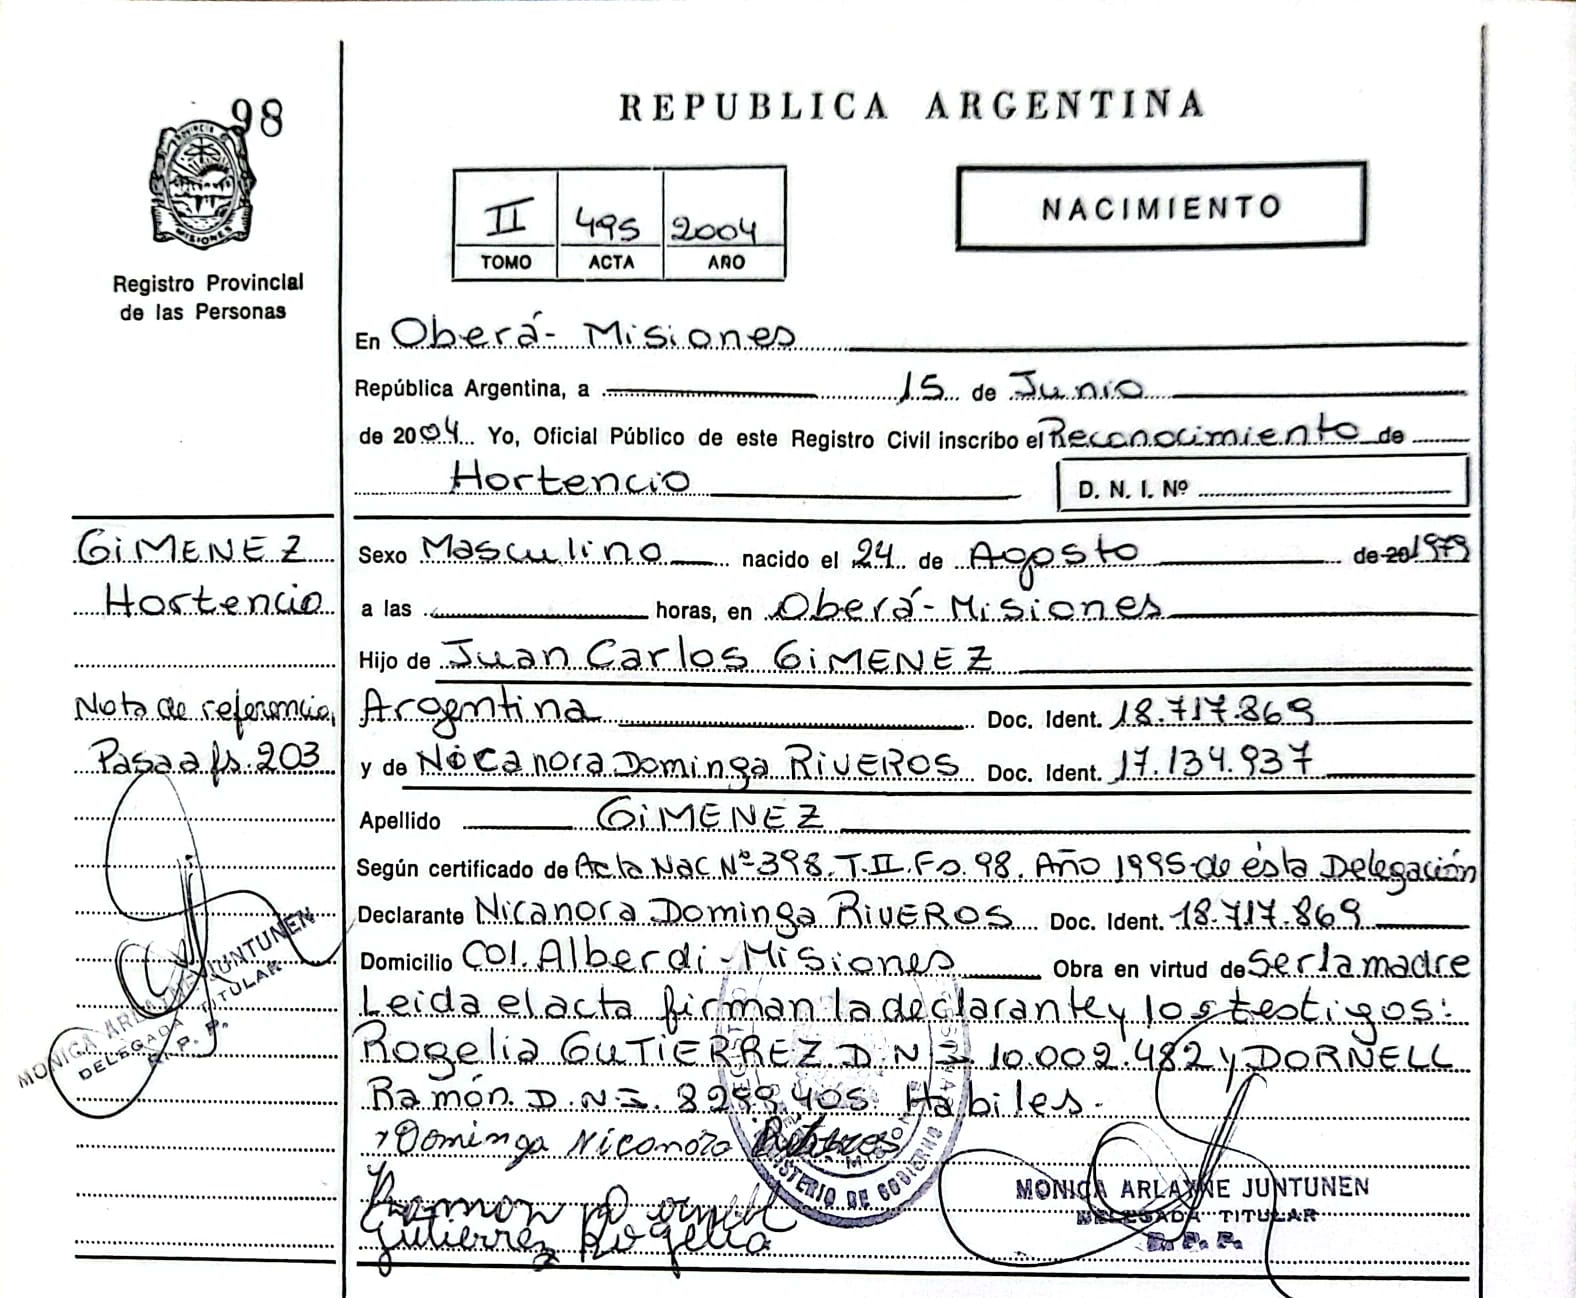 98
REPUBLICA ARGENTINA
PROVINCIA
MISIONES
Registro Provincial
de las Personas
II 495 2004
TOMO ACTA AÑO
NACIMIENTO
En Oberá- Misiones
República Argentina, a 15 de Junio
de 2004 Yo, Oficial Público de este Registro Civil inscribo el Reconocimiento de
Hortencio
D. N. I. Nº
GiMENEZ
Hortencio
Nota de referencia,
Pasa a fs. 203
MONICA ARLAYNE JUNTUNEN
DELEGADA TITULAR
R. P. P.
Sexo Masculino nacido el 24 de Agosto de 20 1979
a las horas, en Oberá-Misiones
Hijo de Juan Carlos GiMENEZ
Argentina Doc. Ident. 18.717.869
y de Nicanora Dominga RiVEROS Doc. Ident. 17.134.937
Apellido GiMENEZ
Según certificado de Acta Nac Nº 398. T. II. Fo. 98. Año 1995 de ésta Delegación
Declarante Nicanora Dominga RiVEROS Doc. Ident. 18.717.869
Domicilio Col. Alberdi - Misiones Obra en virtud de Ser la madre
Leida el acta firman la declarante y los testigos:
Rogelia GUTIERREZ D.N.I. 10.002.482 y DORNELL
Ramón. D.N.I. 8299.405. Hábiles.
Dominga Nicanora Riberos
Ramon Dornell
Gutierrez Rogelia
MINISTERIO DE GOBIERNO
MONICA ARLAYNE JUNTUNEN
DELEGADA TITULAR
R. P. P.